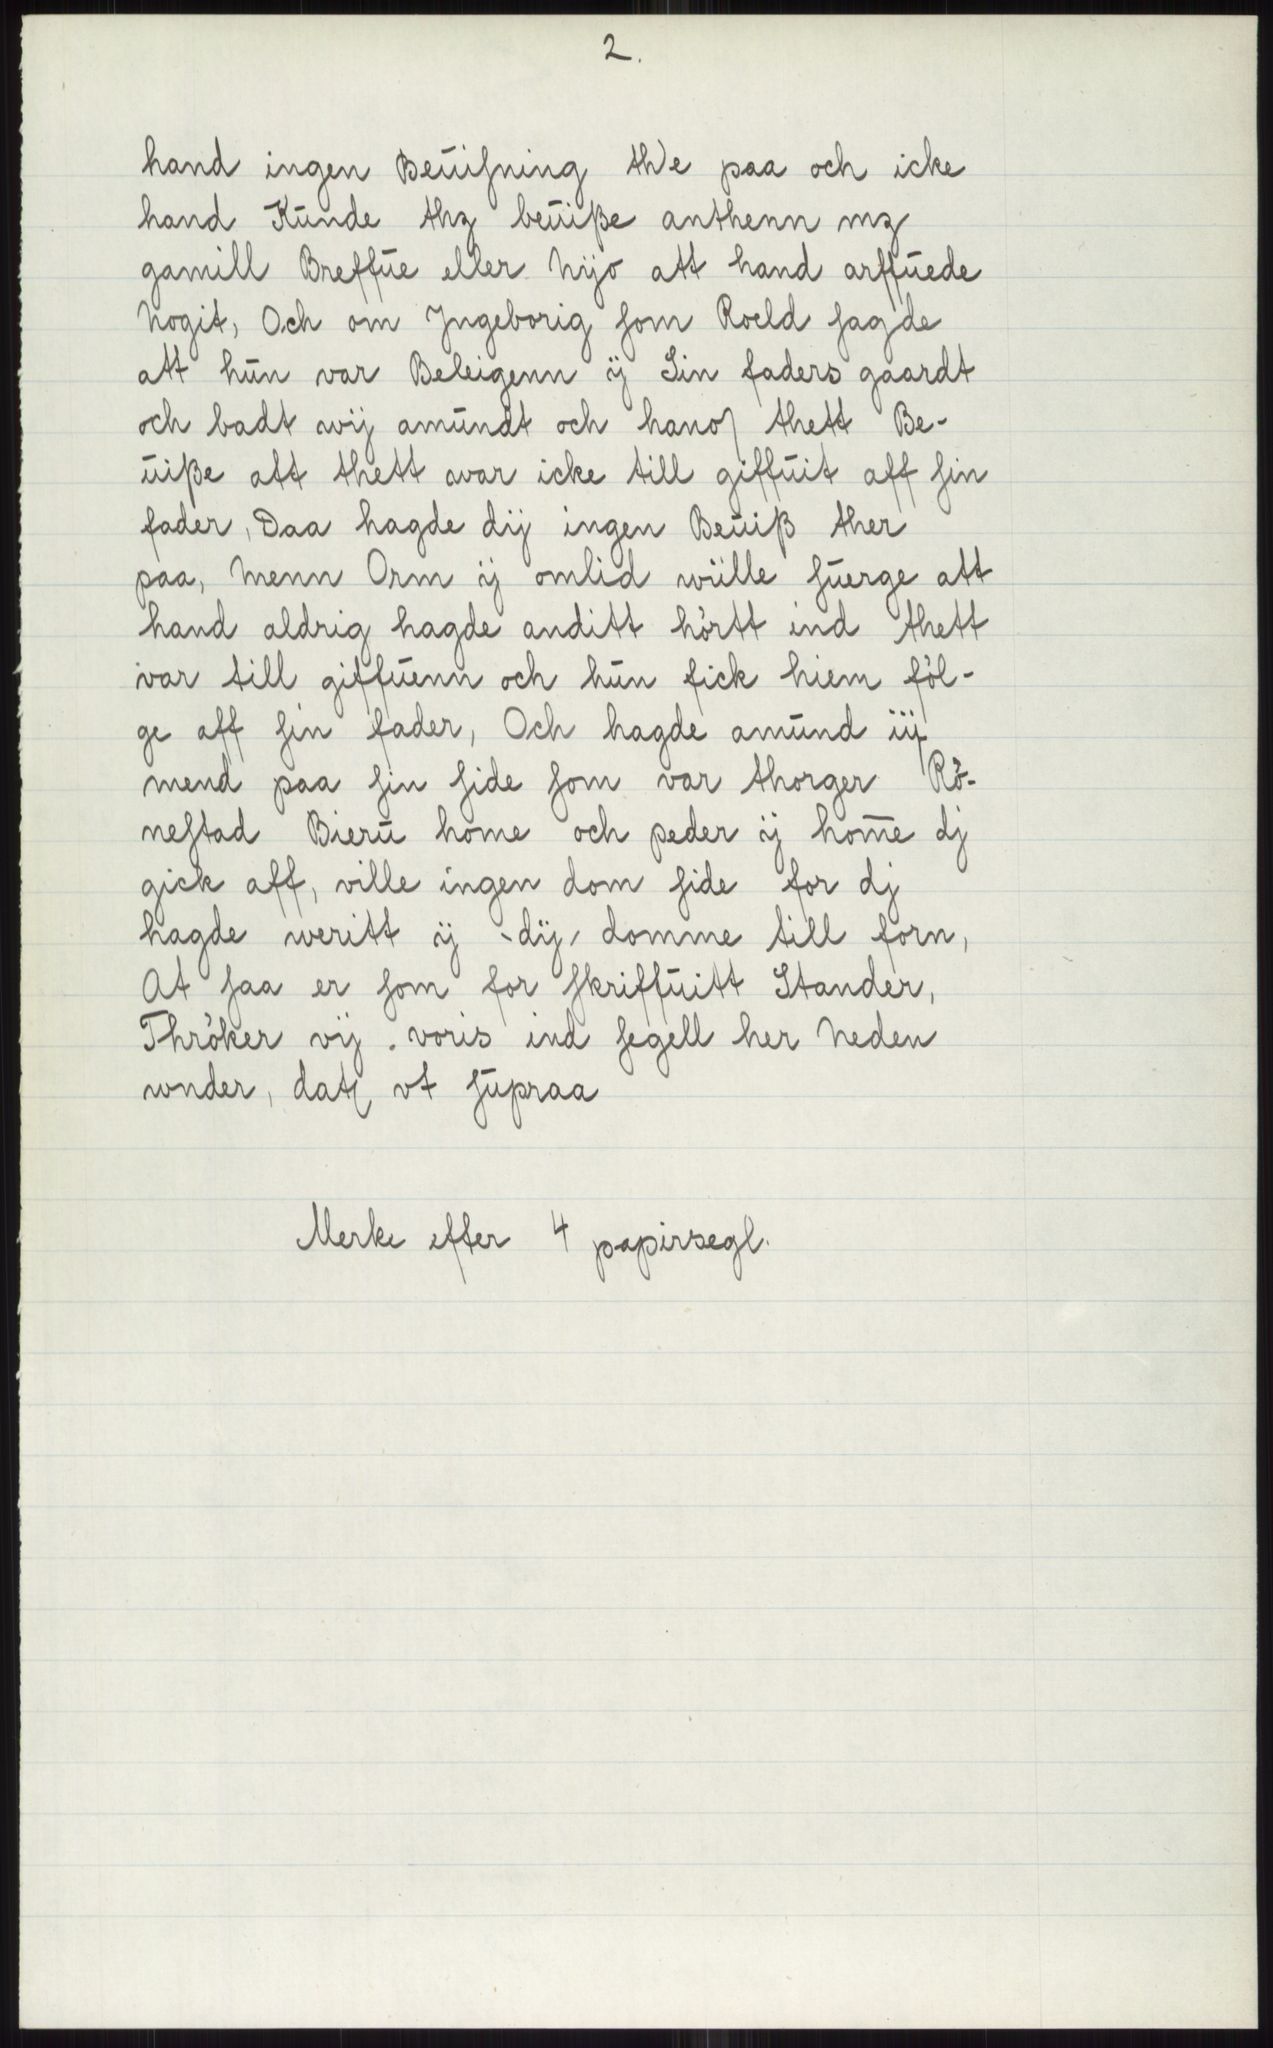 2.
hand ingen Beuiſning the paa och icke
hand Kunde thz beuiße anthenn mz
gamill Breffue eller Nijo att hand arffuede
Nogit, Och om Jngeborig ſom Roeld ſagde
att hun var Beleigenn ÿ Sin faders gaardt
och badt wij amundt och hans thett Be-
uiße att thett war icke till giffuit aff ſin
fader, Daa hagde dij ingen Beuiß ther
paa, Menn Orm ÿ omlid wille ſuerge att
hand aldrig hagde anditt hörtt ind thett
var till giffuenn och hun fick hiem föl-
ge aff ſin fader, Och hagde amund iij
mend paa ſin ſide ſom var thorger Rö-
neſtad Bieru home och peder ÿ hom̄e dj
gick aff, ville ingen dom ſide for dj
hagde weritt ÿ dij domme till forn,
At ſaa er ſom for ſkriffuitt Stander,
Thröker vij voris ind ſegell her Neden
wnder, dat vt ſupraa
Merke efter 4 papirsegl.